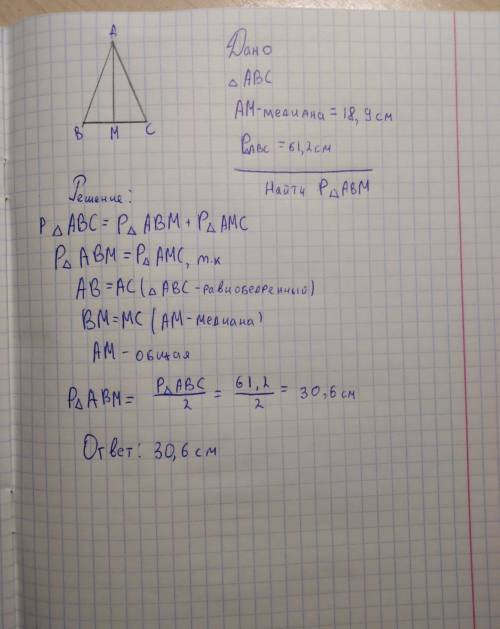 A
B M C
Дано
△ABC
AM-медиана = 18,9см
P△ABC = 61,2см
Найти P△ABM
Решение:
P△ABC = P△ABM + P△AMC
P△ABM = P△AMC, т.к
AB = AC (△ABC - равнобедренный)
BM = MC (AM - медиана)
AM - общая
P△ABM = P△ABC/2 = 61,2/2 = 30,6 см
Ответ: 30,6 см